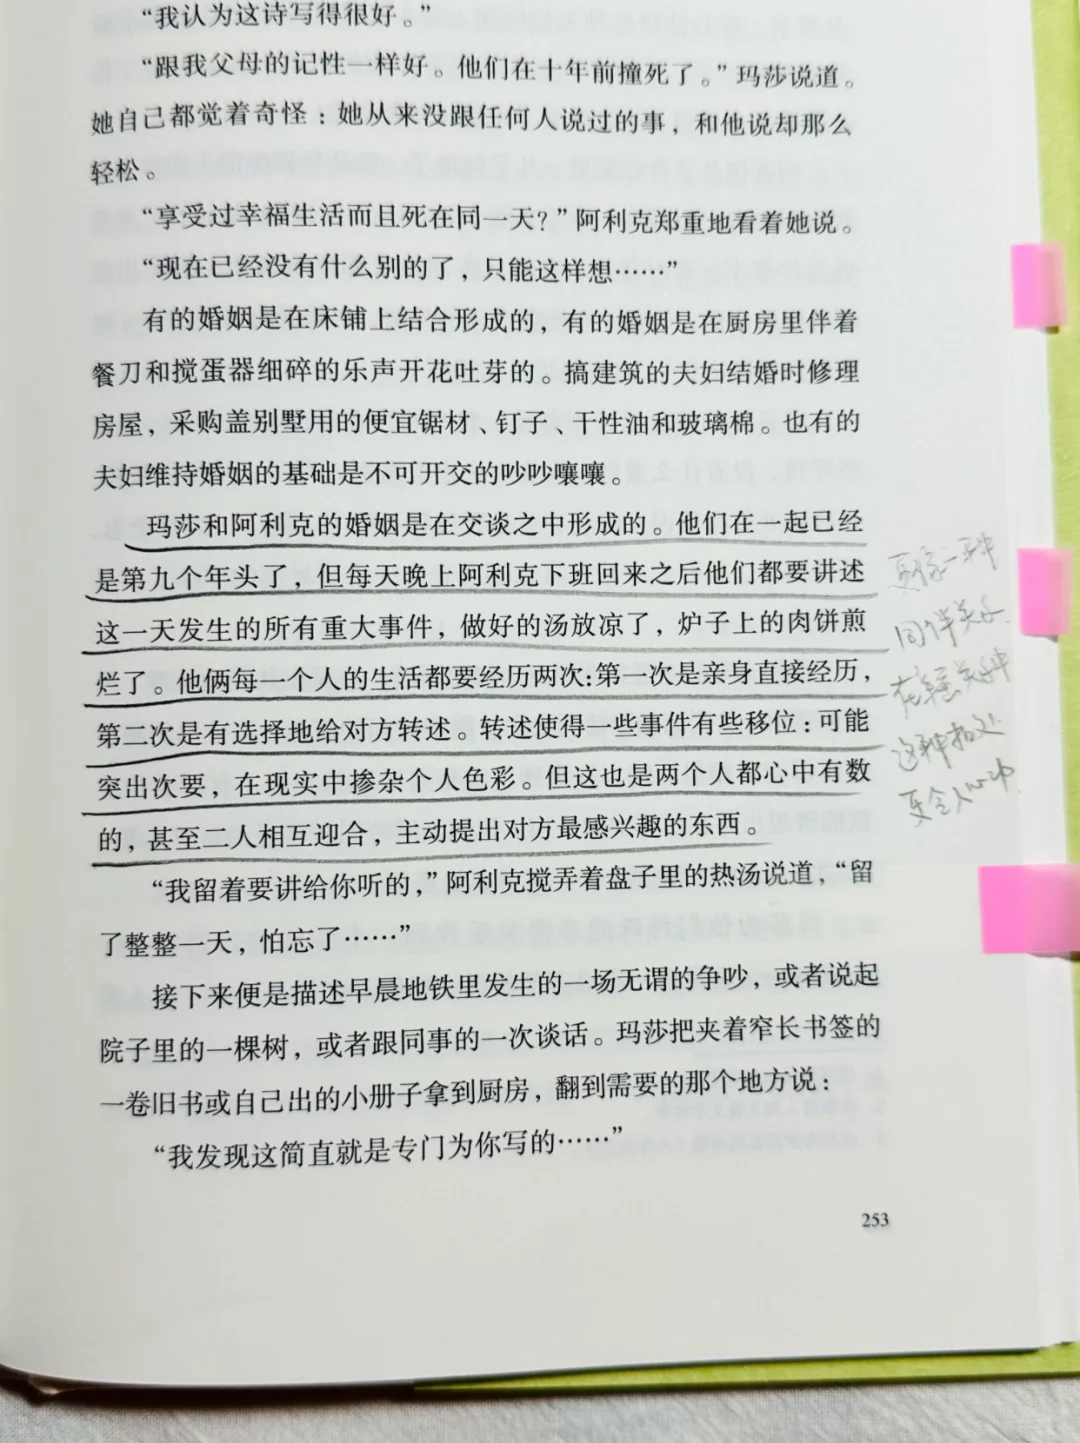 “我认为这诗写得很好。”
“跟我父母的记性一样好。他们在十年前撞死了。”玛莎说道。
她自己都觉着奇怪：她从来没跟任何人说过的事，和他说却那么
轻松。
“享受过幸福生活而且死在同一天？”阿利克郑重地看着她说。
“现在已经没有什么别的了，只能这样想……”
有的婚姻是在床铺上结合形成的，有的婚姻是在厨房里伴着
餐刀和搅蛋器细碎的乐声开花吐芽的。搞建筑的夫妇结婚时修理
房屋，采购盖别墅用的便宜锯材、钉子、干性油和玻璃棉。也有的
夫妇维持婚姻的基础是不可开交的吵吵嚷嚷。
玛莎和阿利克的婚姻是在交谈之中形成的。他们在一起已经
是第九个年头了，但每天晚上阿利克下班回来之后他们都要讲述
这一天发生的所有重大事件，做好的汤放凉了，炉子上的肉饼煎
烂了。他俩每一个人的生活都要经历两次：第一次是亲身直接经历，
第二次是有选择地给对方转述。转述使得一些事件有些移位：可能
突出次要，在现实中掺杂个人色彩。但这也是两个人都心中有数
的，甚至二人相互迎合，主动提出对方最感兴趣的东西。
“我留着要讲给你听的，”阿利克搅弄着盘子里的热汤说道，“留
了整整一天，怕忘了……”
接下来便是描述早晨地铁里发生的一场无谓的争吵，或者说起
院子里的一棵树，或者跟同事的一次谈话。玛莎把夹着窄长书签的
一卷旧书或自己出的小册子拿到厨房，翻到需要的那个地方说：
“我发现这简直就是专门为你写的……”
253
更像一种
同伴关系
这种
更令人心